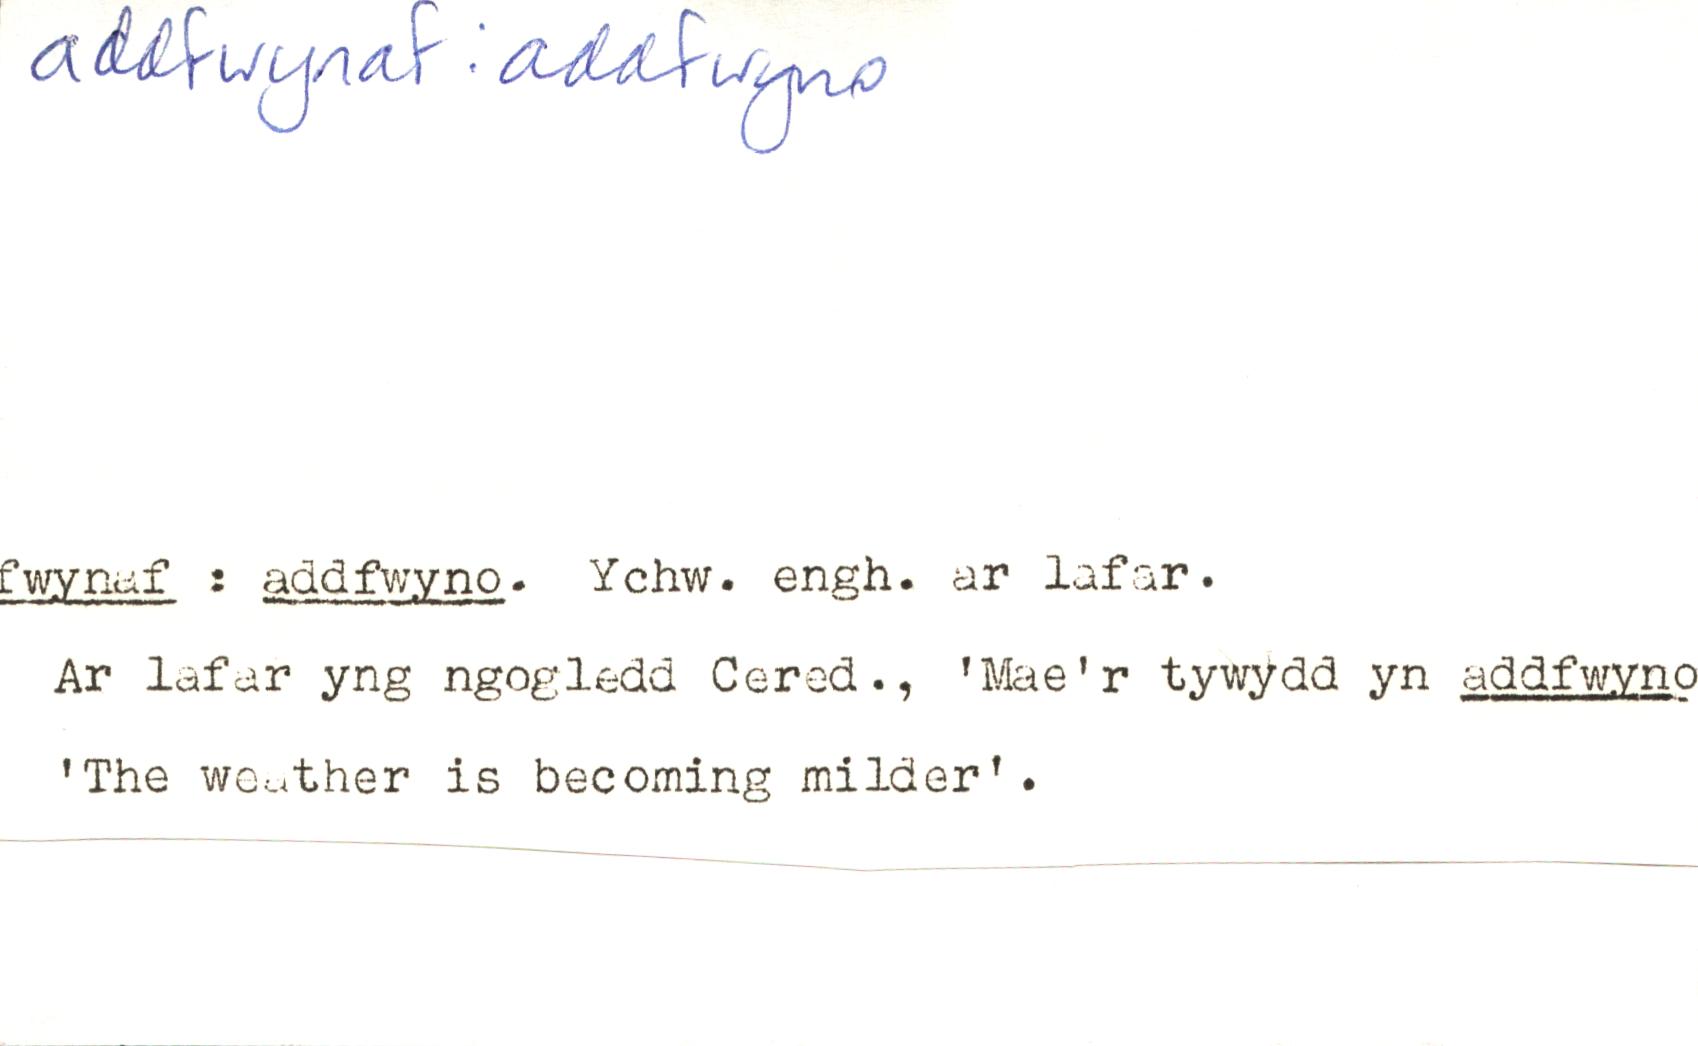 addfwynaf : addfwyno
fwynaf : addfwyno. Ychw. engh. ar lafar.
Ar lafar yng ngogledd Cered., 'Mae'r tywydd yn addfwyno
'The weather is becoming milder'.